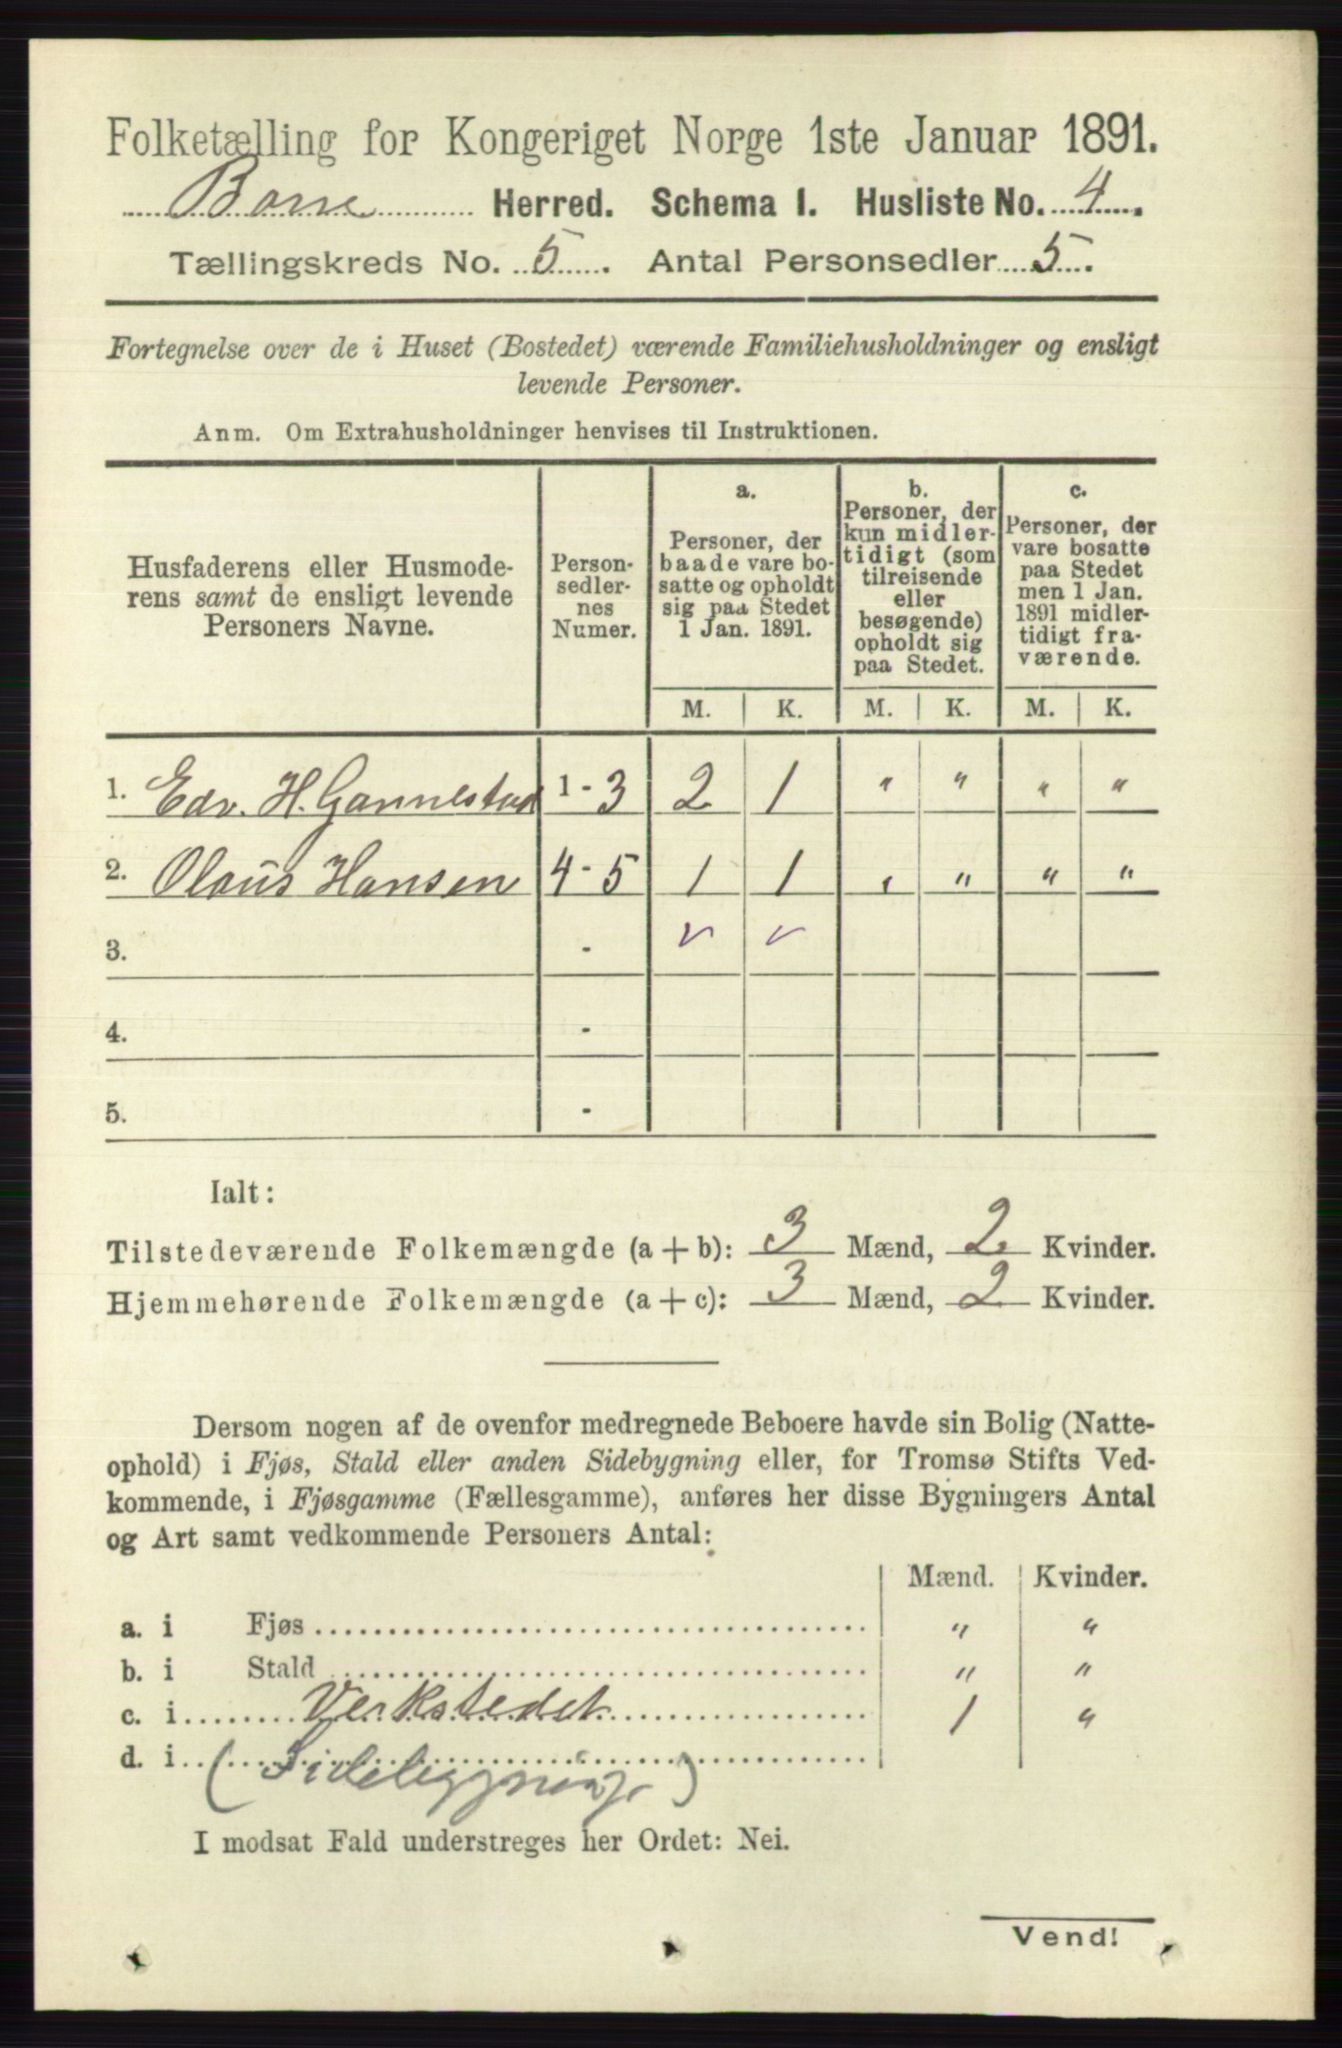 Folketælling for Kongeriget Norge 1ste Januar 1891.
Borre Herred. Schema I. Husliste No. 4.
Tællingskreds No. 5. Antal Personsedler 5.
Fortegnelse over de i Huset (Bostedet) værende Familiehusholdninger og ensligt
levende Personer.
Anm. Om Extrahusholdninger henvises til Instruktionen.
Husfaderens eller Husmode-
rens samt de ensligt levende
Personers Navne.
Person-
sedler-
nes
Numer.
a.
Personer, der
baade vare bo-
satte og opholdt
sig paa Stedet
1 Jan. 1891.
b.
Personer, der
kun midler-
tidigt (som
tilreisende
eller
besøgende)
opholdt sig
paa Stedet.
c.
Personer, der
vare bosatte
paa Stedet
men 1 Jan.
1891 midler-
tidigt fra-
værende.
M. K. M. K. M. K.
1. Edv. H. Gannestad 1-3 2 1 " " " "
2. Olaus Hansen 4-5 1 1 " " " "
3. - v v
4. -
5. -
Ialt:
Tilstedeværende Folkemængde (a + b): 3 Mænd, 2 Kvinder.
Hjemmehørende Folkemængde (a + c): 3 Mænd, 2 Kvinder.
Dersom nogen af de ovenfor medregnede Beboere havde sin Bolig (Natte-
ophold) i Fjøs, Stald eller anden Sidebygning eller, for Tromsø Stifts Ved-
kommende, i Fjøsgamme (Fællesgamme), anføres her disse Bygningers Antal
og Art samt vedkommende Personers Antal:
Mænd. Kvinder.
a. i Fjøs " "
b. i Stald " "
c. i Verkstedet 1 "
d. i (Sidebygning)
I modsat Fald understreges her Ordet: Nei.
Vend!